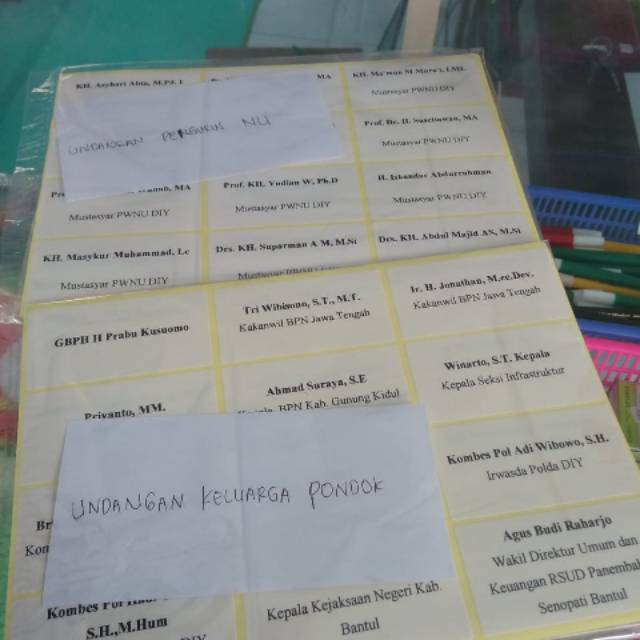 KH. Asyhari Abta, M.Pd. I
MA
KH. Ma'mun M Mura'i, LML
Mustasyar PWNU DIY
UNDANGAN PENGURUS NU
Prof. Dr. H.
MA
Mustasyar PWNU DIY
MA
Mustasyar PWNU DIY
Prof. KH. Yudian W, Ph.D
Mustasyar PWNU DIY
H. Iskandar Abdurrohman
Mustasyar PWNU DIY
KH. Masykur Muhammad, Lc
Mustasyar PWNU DIY
Drs. KH. Suparman A M, M.Si
Mustasyar PWNU DIY
Drs. KH. Abdul Majid AS, M.Si
GBPH H Prabu Kusuomo
Tri Wibisono, S.T., M.T.
Kakanwil BPN Jawa Tengah
Ir. H. Jonathan, M.ec.Dev.
Kakanwil BPN Jawa Tengah
Priyanto, MM.
Ahmad Suraya, S.E
BPN Kab. Gunung Kidul
Winarto, S.T. Kepala
Kepala Seksi Infrastruktur
UNDANGAN KELUARGA PONDOK
Kombes Pol Adi Wibowo, S.H.
Irwasda Polda DIY
Kombes Pol
S.H.,M.Hum
DIY
Kepala Kejaksaan Negeri Kab.
Bantul
Agus Budi Raharjo
Wakil Direktur Umum dan
Keuangan RSUD Panembah
Senopati Bantul